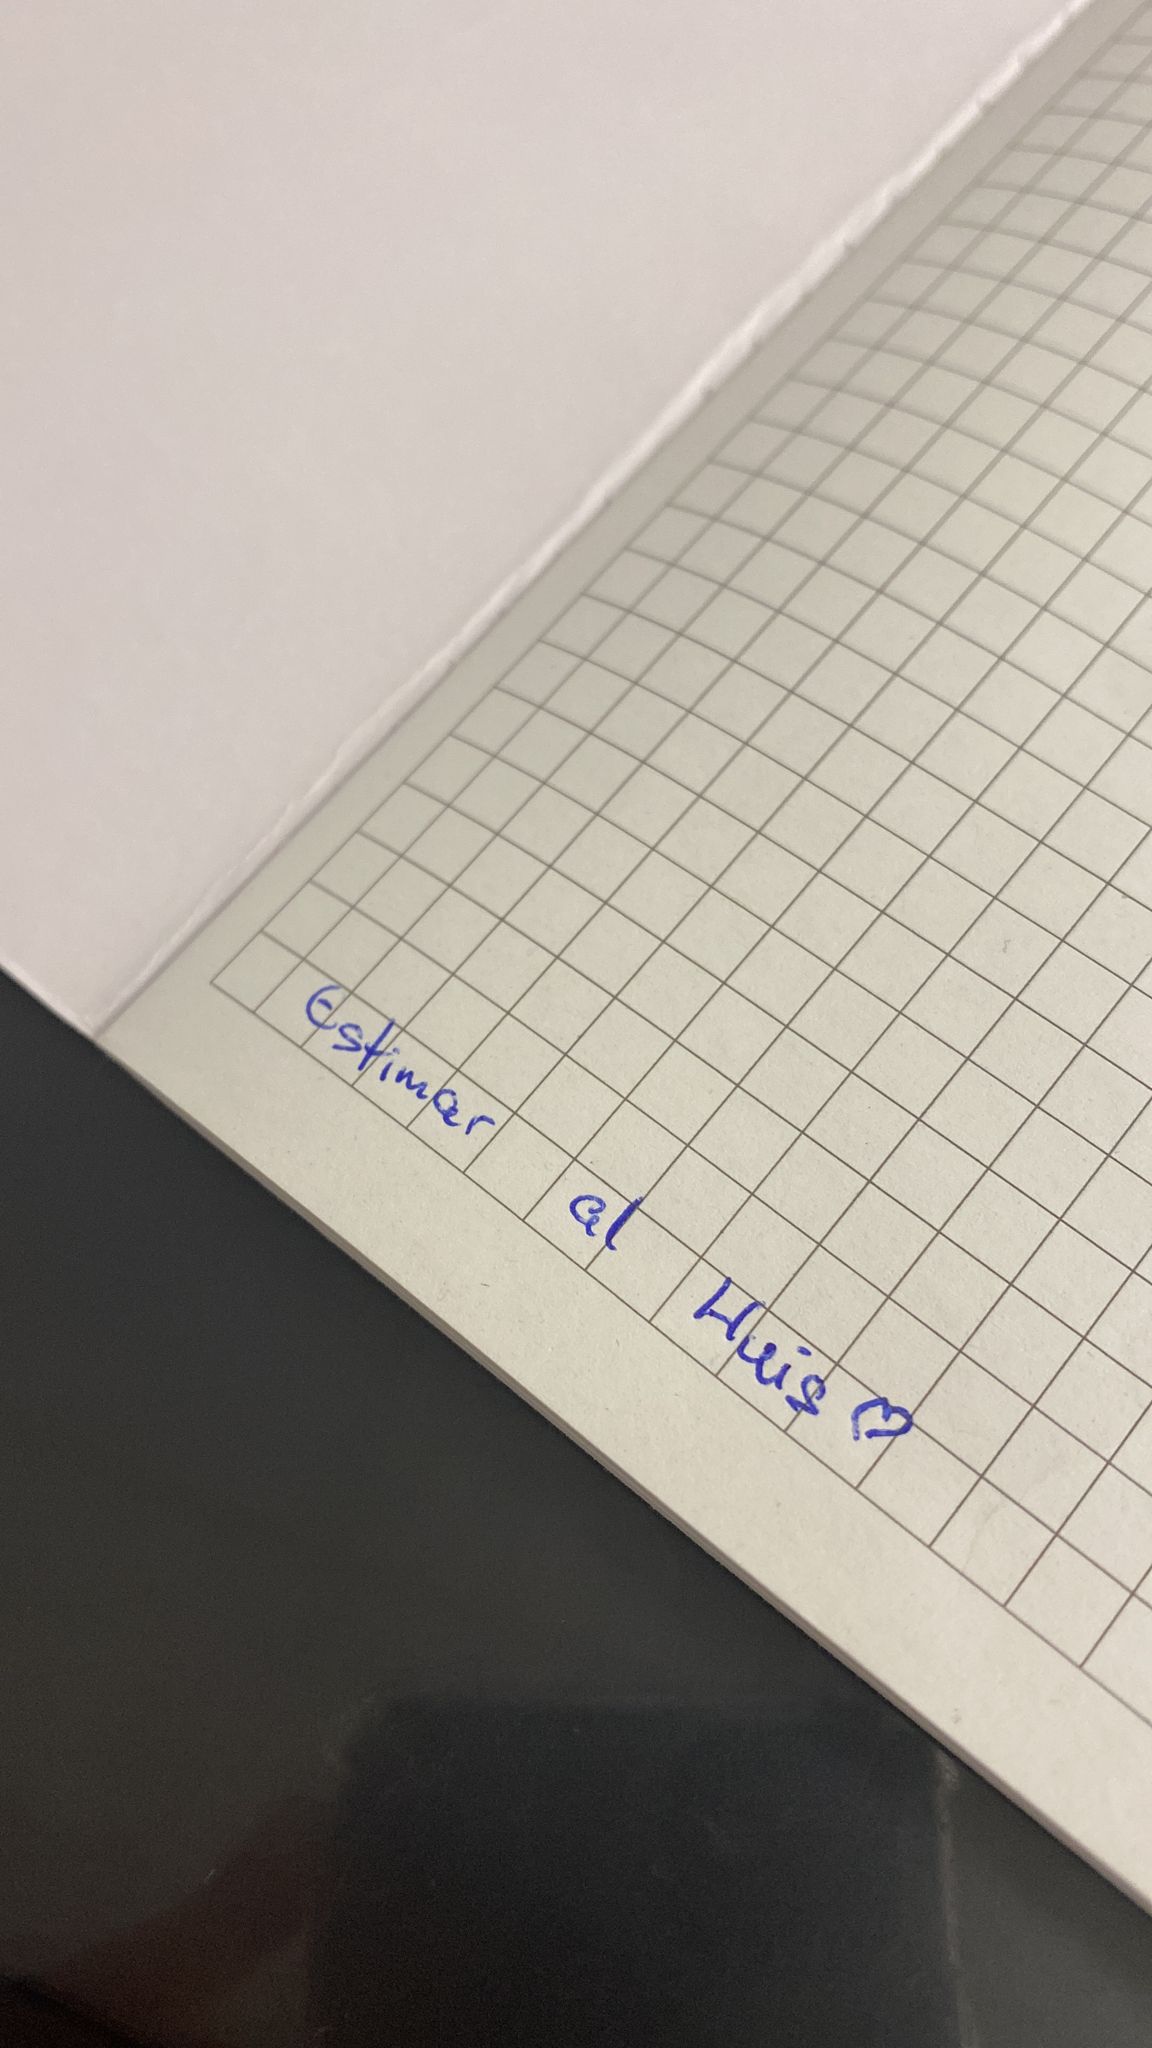 Estimar al Huis ♡